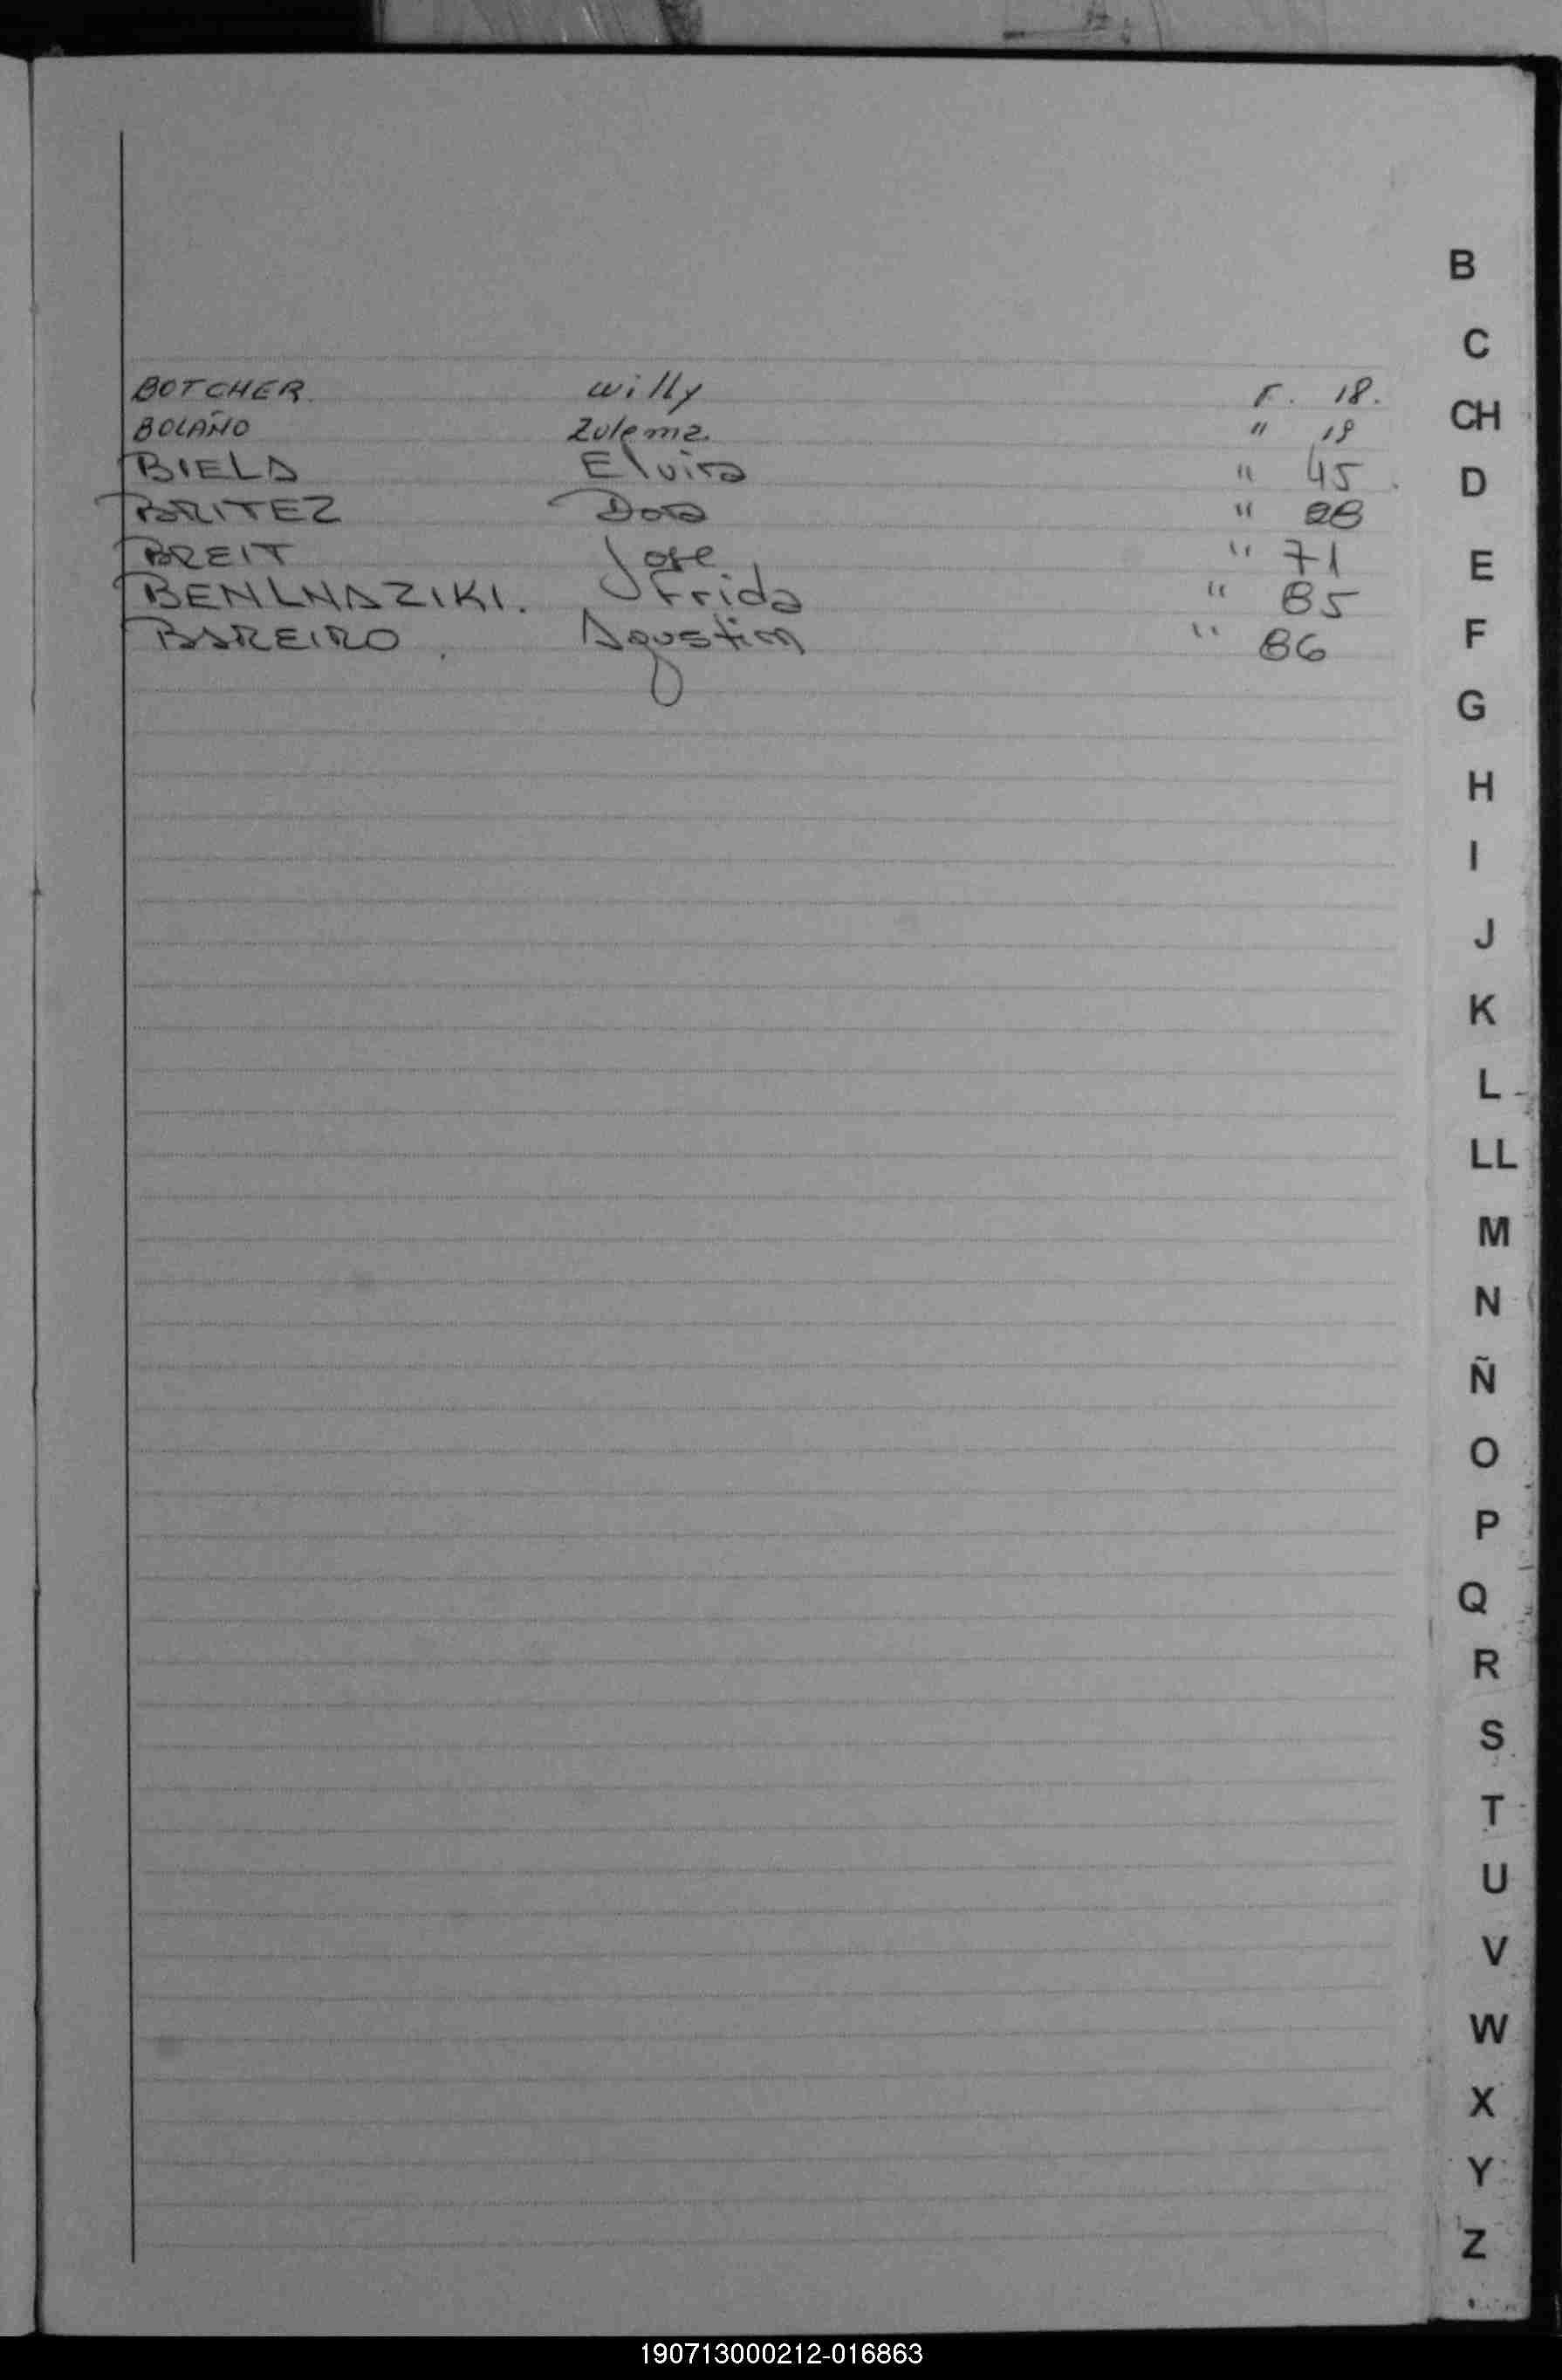 B
C
BOTCHER. willy F. 18.
CH
BOLAÑO Zulema. " 19
BIELA Elvira " 45
D
BRITEZ Dora "
BREIT Jose " 71
E
Frida " 85
BAREIRO Agustin " 86
F
G
H
I
J
K
L
LL
M
N
Ñ
O
P
Q
R
S
T
U
V
W
X
Y
Z
190713000212-016863